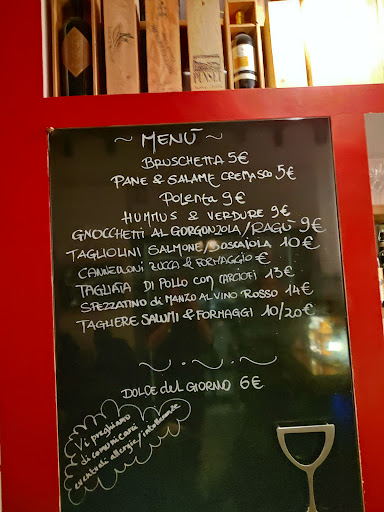 ~ MENÙ ~
BRUSCHETTA 5€
PANE & SALAME CREMASCO 5€
POLENTA 9€
HUMMUS & VERDURE 9€
GNOCCHETTI AL GORGONZOLA/RAGÙ 9€
TAGLIOLINI SALMONE/BOSCAIOLA 10€
CANNELLONI ZUCCA & FORMAGGIO €
TAGLIATA DI POLLO CON CARCIOFI 13€
SPEZZATINO di MANZO AL VINO ROSSO 14€
TAGLIERE SALUMI & FORMAGGI 10/20€
DOLCE del GIORNO 6€
Vi preghiamo
di comunicarci
eventuali allergie/intolleranze